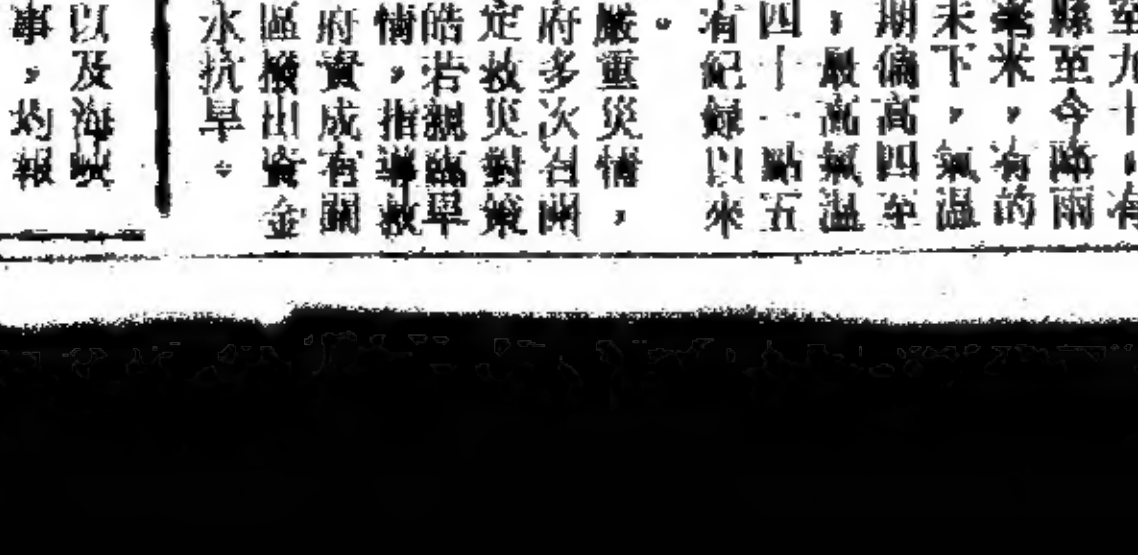 至九十
縣至今降雨
毫米，有的
未下，氣溫
期偏高四至
，最高氣溫
四十點五
有紀錄以來
。
嚴重災情，
府多次召開
定救災對策
皓若親臨旱
情，指導救
府責成有關
區撥出資金
水抗旱。
以及海峽
事，灼報